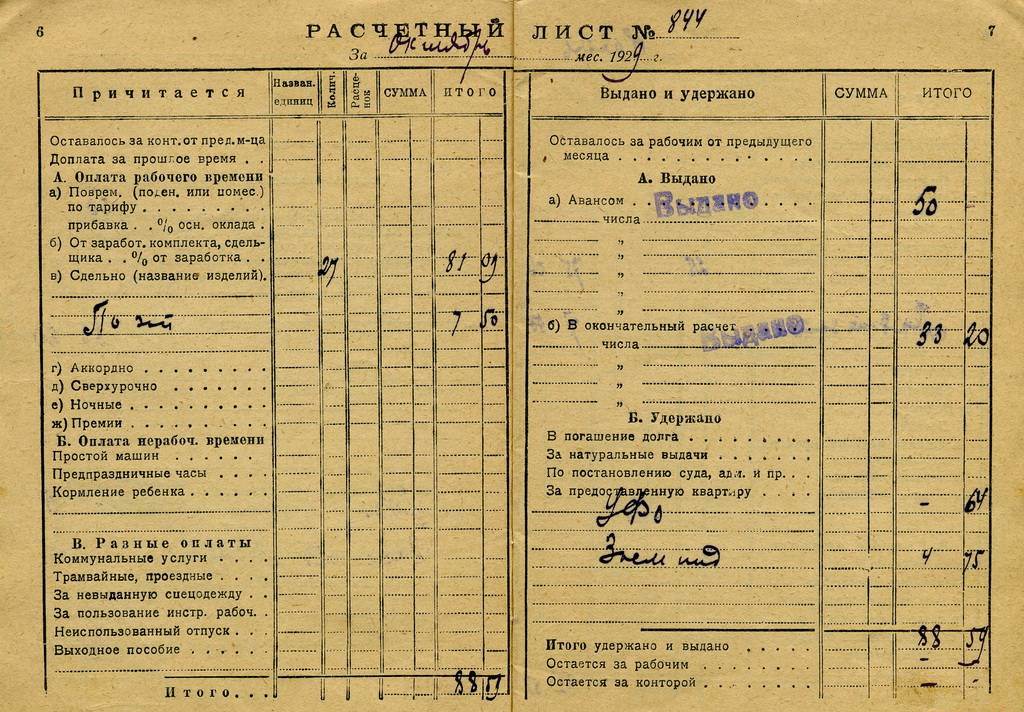 6
РАСЧЕТНЫЙ ЛИСТ № 844
7
За октябрь мес. 1929 г.
Причитается
Назван. единиц
Колич.
Расценок
СУММА
ИТОГО
Оставалось за конт. от пред. м-ца
Доплата за прошлое время . .
А. Оплата рабочего времени
а) Поврем. (поден. или помес.)
по тарифу
прибавка . . % осн. оклада .
б) От заработ. комплекта, сдель-
щика . . % от заработка . .
27 81 09
в) Сдельно (название изделий).
7 50
г) Аккордно
д) Сверхурочно
е) Ночные
ж) Премии
Б. Оплата нерабоч. времени
Простой машин
Предпраздничные часы
Кормление ребенка
В. Разные оплаты
Коммунальные услуги
Трамвайные, проездные
За невыданную спецодежду
За пользование инстр. рабоч.
Неиспользованный отпуск
Выходное пособие
Итого... 88 59
Выдано и удержано
СУММА
ИТОГО
Оставалось за рабочим от предыдущего
месяца
А. Выдано
а) Авансом Выдано 50
числа
"
"
"
"
"
б) В окончательный расчет Выдано 33 20
числа
"
"
"
Б. Удержано
В погашение долга
За натуральные выдачи
По постановлению суда, адм. и пр.
За предоставленную квартиру
– 64
4 75
Итого удержано и выдано 88 59
Остается за рабочим –
Остается за конторой – -